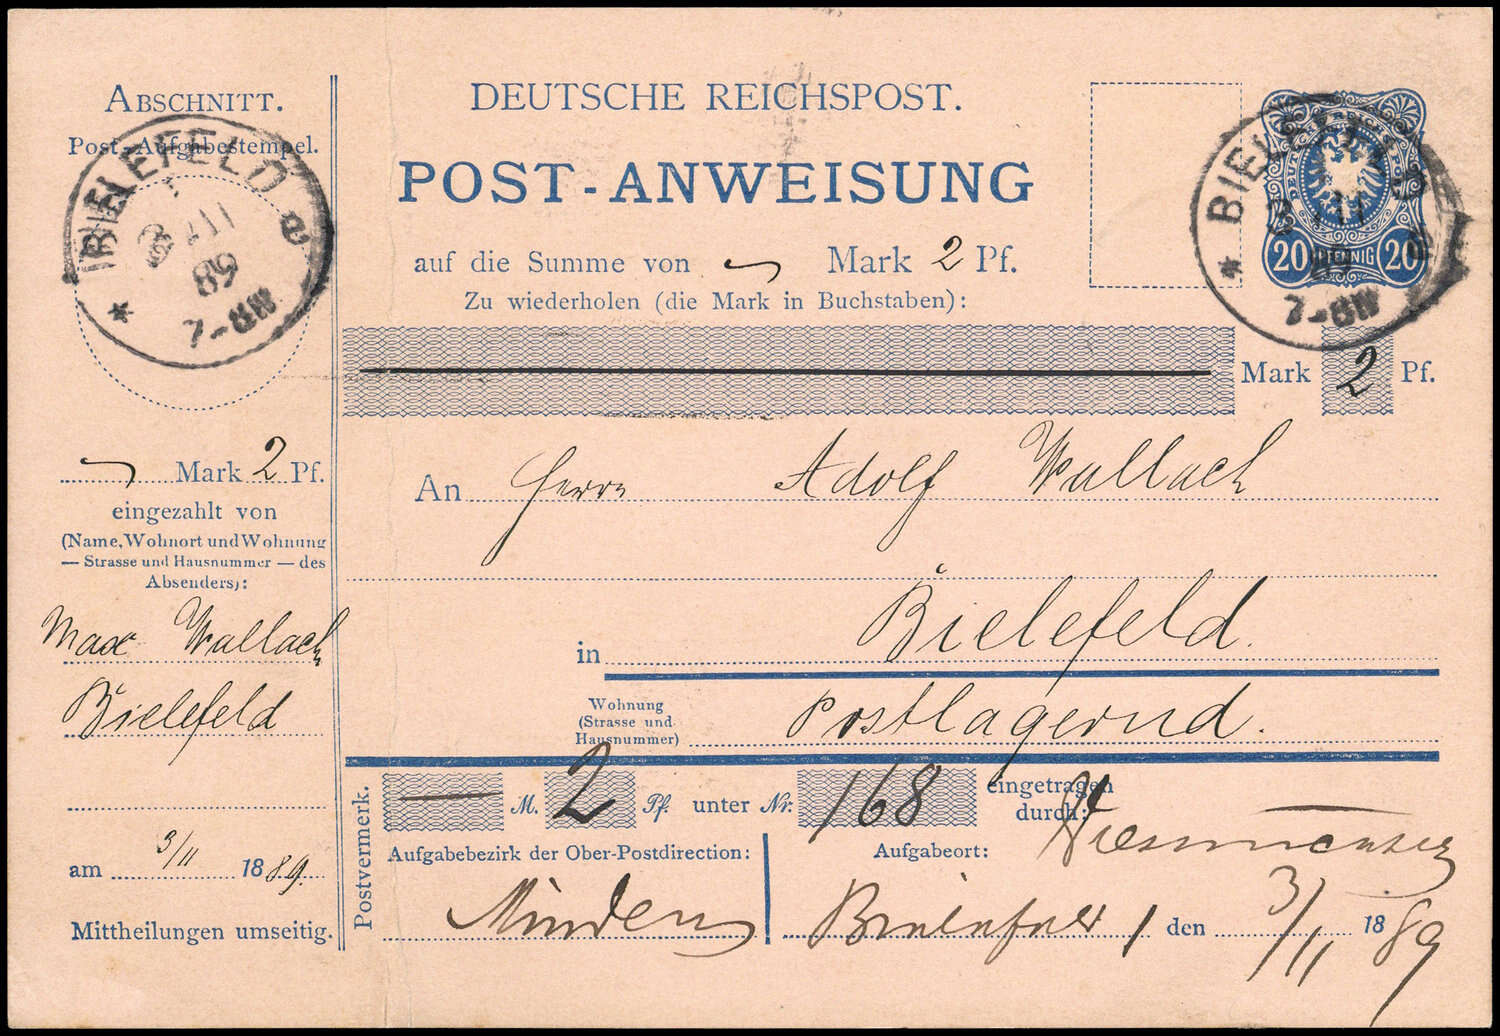 ABSCHNITT.
Post-Aufgabestempel.
BIELEFELD
* e
3 11
89
7-8N
Mark 2 Pf.
eingezahlt von
(Name, Wohnort und Wohnung
— Strasse und Hausnummer — des
Absenders):
Max Wallach
Bielefeld
am 3/11 1889.
Mittheilungen umseitig.
DEUTSCHE REICHSPOST.
POST-ANWEISUNG
auf die Summe von Mark 2 Pf.
Zu wiederholen (die Mark in Buchstaben):
Mark 2 Pf.
DEUTSCHE REICHSPOST
20 PFENNIG 20
BIELEFELD
*
3 11
7-8N
An Herrn Adolf Wallach
in Bielefeld.
Wohnung
(Strasse und
Hausnummer)
Postlagernd.
Postvermerk.
— M. 2 Pf. unter Nr. 168 eingetragen
durch:
Aufgabebezirk der Ober-Postdirection:
Minden
Aufgabeort:
Bielefeld 1 den 3/11 1889